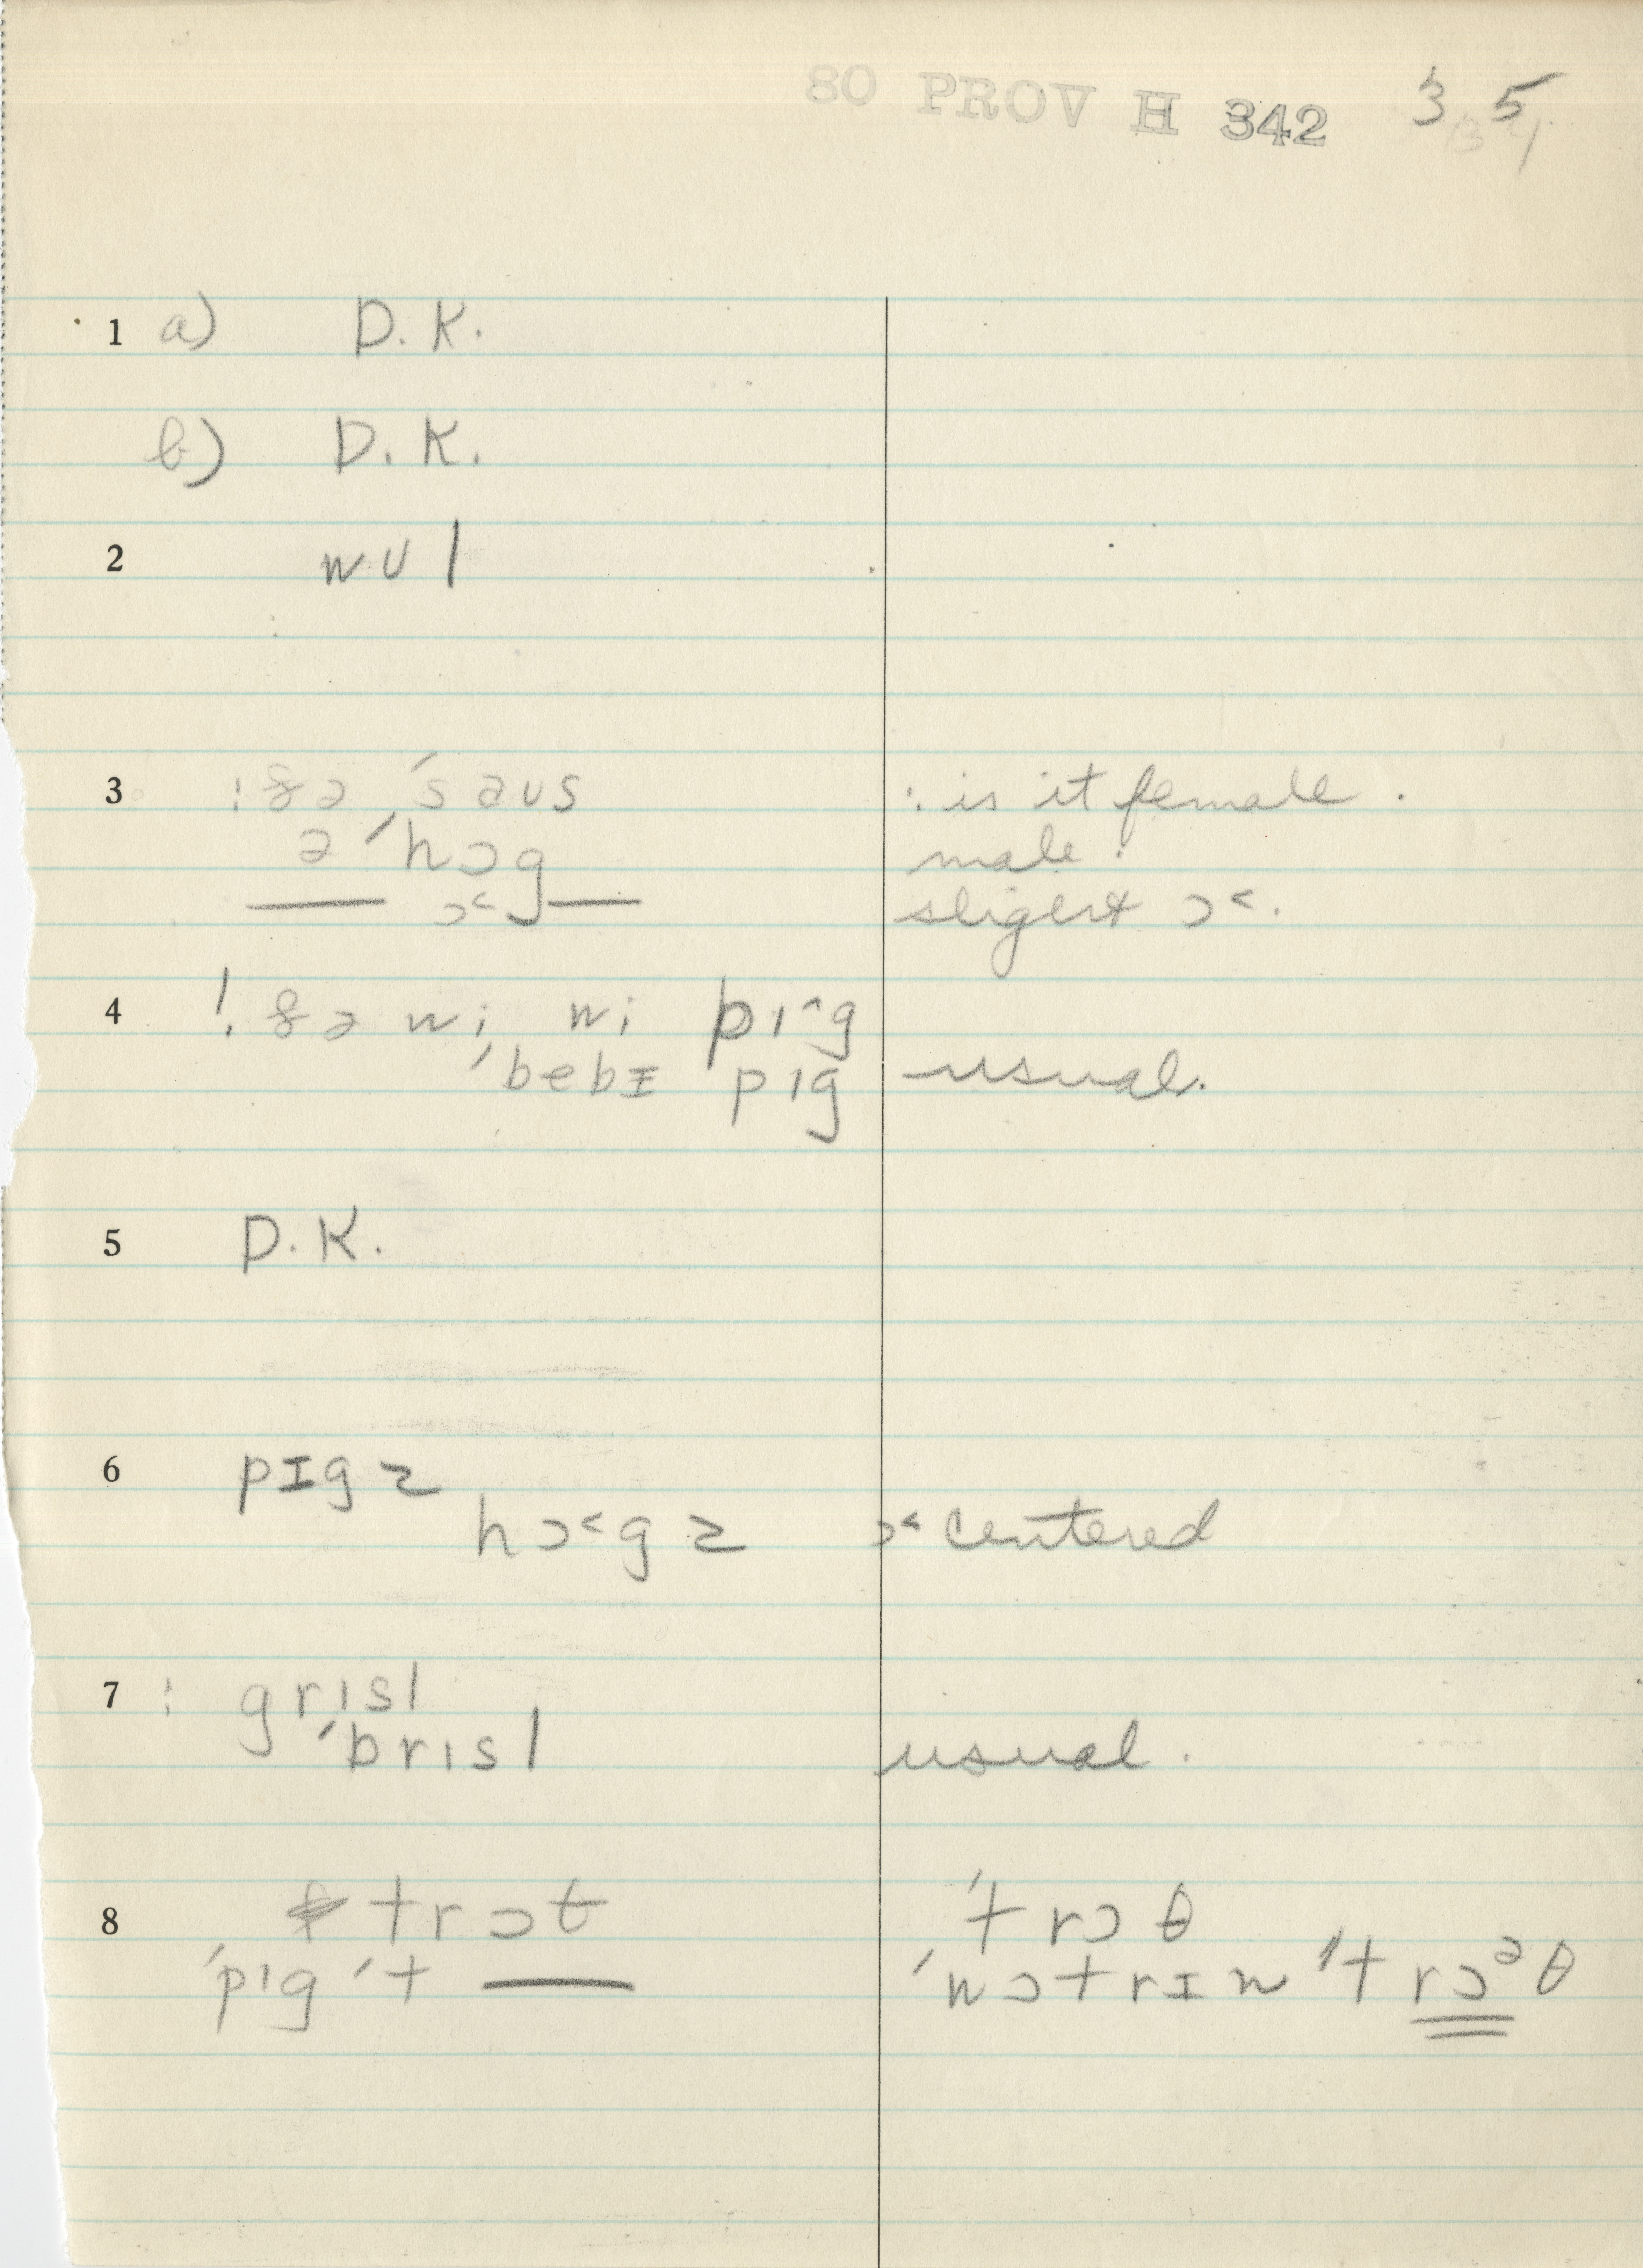 80 PROV H 342 35
1 a) D. K.
b) D. K.
2 wʊl
3 ꞉ ðə ˈsaʊs : is it female .
ə ˈhɔg male .
— ɔ˂g — ɔ˂.
4 ! ðə wi wi pɪ^g
ˈbebɪ pɪg usual.
5 D. K.
6 pɪgz
hɔ˂gz ɔ˂ centered
7 : grɪsl
ˈbrɪsl usual .
8 trɔt ˈtrɔθ
ˈpɪg ˈt — ˈwɔtrɪn ˈtrɔᵊθ